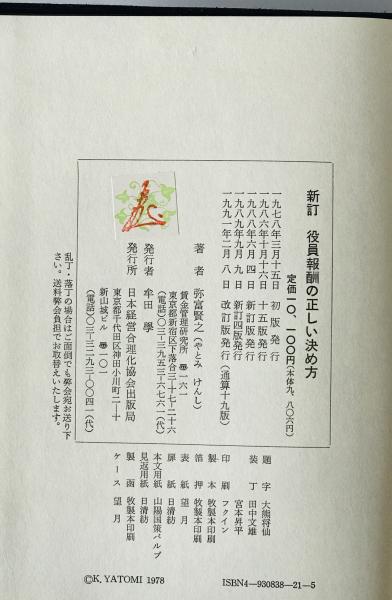 新訂 役員報酬の正しい決め方
定価一〇、一〇〇円(本体九、八〇六円)
一九七八年三月十五日 初版発行
一九八六年十月十六日 十五版発行
一九八八年六月四日 新訂版発行
一九八九年九月九日 新訂四版発行
一九九一年二月八日 改訂版発行(通算十九版)
著者 弥富賢之(やとみ けんし)
賃金管理研究所 〒一六一
東京都新宿区下落合三―十七―二十六
(電話)〇三―三九五三―六七六一(代)
発行者 牟田 學
発行所 日本経営合理化協会出版局
東京都千代田区神田小川町二―十
新山城ビル 〒一〇一
(電話)〇三―三二九三―〇〇四一(代)
乱丁・落丁の場合はご面倒でも弊会宛お送り下
さい。送料弊会負担でお取替えいたします。
題字 大熊将仙
装丁 田中文雄
宮本昇平
印刷 フクイン
製本 牧製本印刷
箔押 牧製本印刷
表紙 望月
扉紙 日清紡
本文用紙 山陽国策パルプ
見返用紙 日清紡
製函 牧製本印刷
ケース 望月
©K. YATOMI 1978
ISBN4―930838―21―5